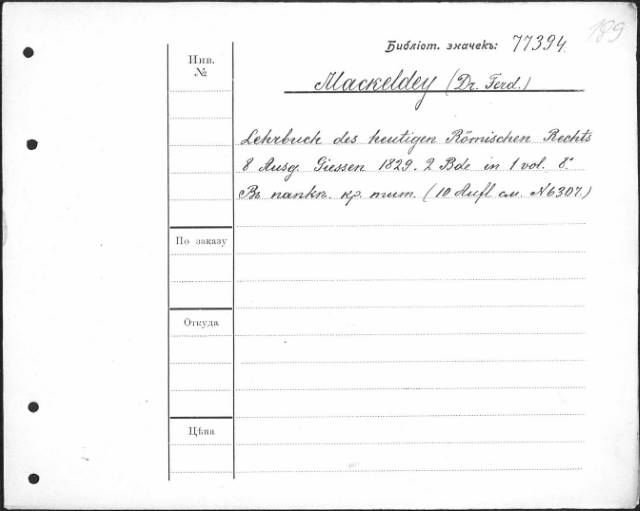 189
Библіот. значекъ: 77394
Инв.
№
Mackeldey (Dr. Ferd.)
Lehrbuch des heutigen Römischen Rechts
8 Ausg. Giessen 1829. 2 Bde in 1 vol. 8º
Въ папкѣ. кр. тит. (10 Aufl см. №6307.)
По заказу
Откуда
Цѣна